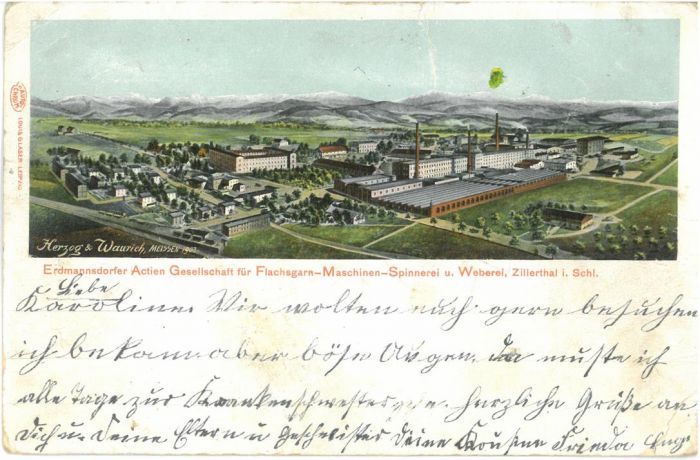 Herzog & Waurich, MEISSEN 1902
LOUIS GLASER LEIPZIG
Erdmannsdorfer Actien Gesellschaft für Flachsgarn-Maschinen-Spinnerei u. Weberei, Zillerthal i. Schl.
Liebe
Karoline. Wir wolten euch gern besuchen
ich bekam aber böse Augen. Da muste ich
alle Tage zur Krankenschwester herzliche Grüße an
Dich u. Deine Eltern u Geschwister Deine Kousine Frieda